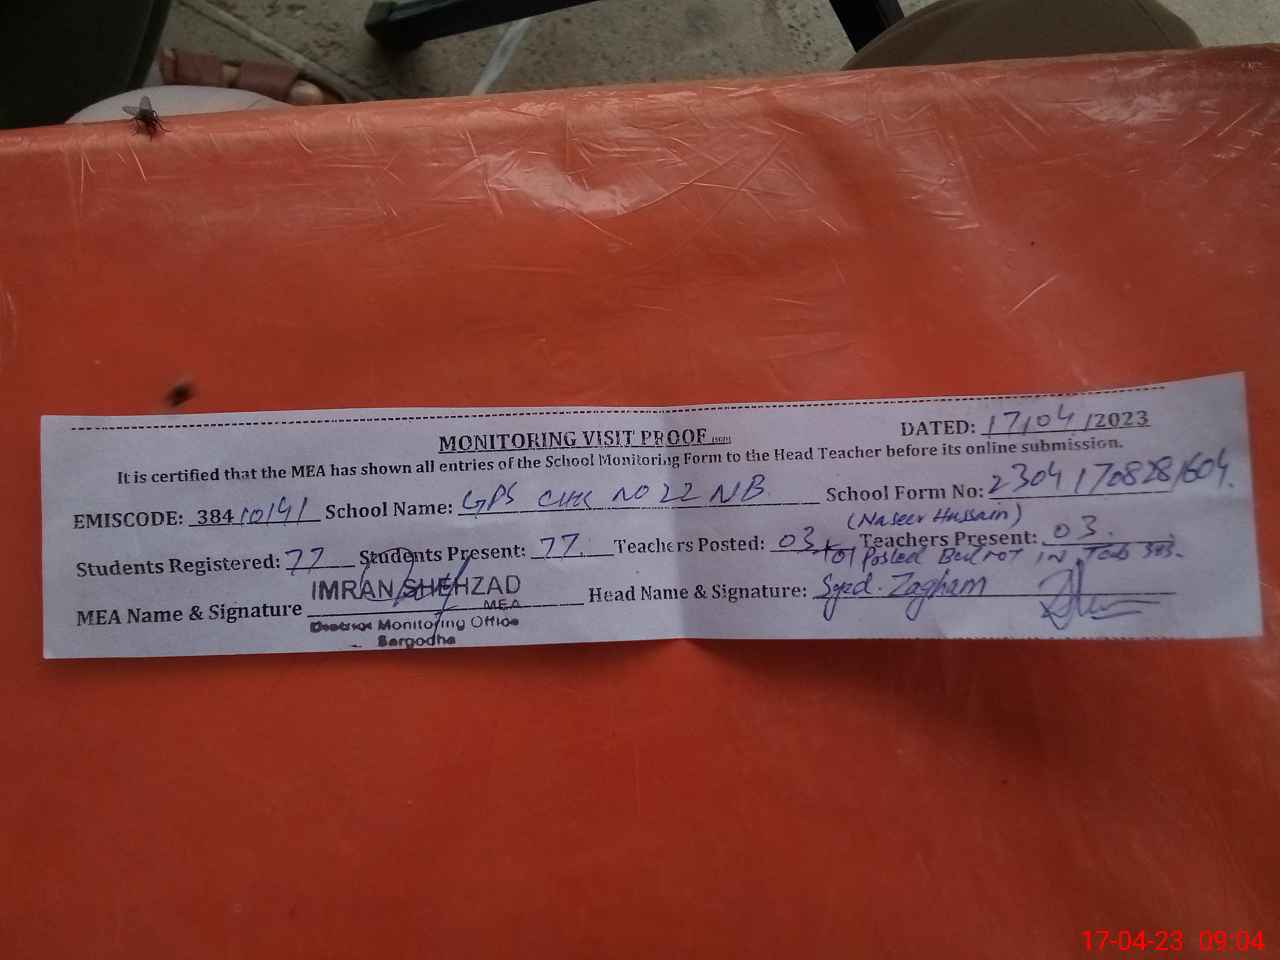 DATED: 17/04/2023
MONITORING VISIT PROOF (SGD)
It is certified that the MEA has shown all entries of the School Monitoring Form to the Head Teacher before its online submission.
EMISCODE: 38410141 School Name: GPS CHK NO 22 NB School Form No: 23041708281604.
(Naseer Hussain)
Students Registered: 77 Students Present: 77. Teachers Posted: 03 Teachers Present: 03.
+01 Posted But not IN
MEA Name & Signature IMRAN SHEHZAD Head Name & Signature: Syed. Zagham
MEA
District Monitoring Office
Sargodha
17-04-23 09:04